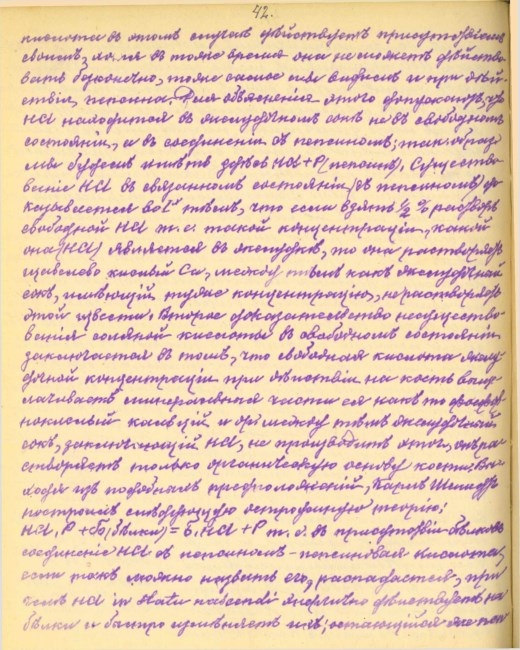 42.
кислота въ этомъ случаѣ дѣйствуетъ присутствіемъ
своимъ, но въ тоже время она не можетъ дѣйство-
вать безконечно, тоже самое мы видѣли и при дѣй-
ствіи пепсина. Для объясненія этого допускаютъ, что
HCl находится въ желудочномъ сокѣ не въ свободномъ
состояніи, а въ соединеніи съ пепсиномъ; так. образ.
мы будемъ имѣть здѣсь HCl + P (пепсинъ). Существо-
ваніе HCl въ связанномъ состояніи (въ пепсиномъ) до-
казывается во 1хъ тѣмъ, что если взять ½ % растворъ
свободной HCl т. е. такой концентраціи, какой
она (HCl) является въ желудкѣ, то она растворяетъ
щавелево кислый Ca, между тѣмъ какъ желудочный
сокъ, имѣющій туже концентрацію, не растворяетъ
этой извести. Второе доказательство несущество-
ванія соляной кислоты въ свободномъ состояніи
заключается въ томъ, что свободная кислота желу-
дочной концентраціи при дѣйствіи на кость
минеральныя части ея какъ то фосфор-
нокислый кальцій и др. между тѣмъ желудочный
сокъ, заключающій HCl, не производитъ этого, онъ ра-
створяетъ только органическую основу кости. Вы-
ходя изъ подобныхъ предположеній, Карлъ Шмидтъ
построилъ слѣдующую остроумную теорію:
HCl, P + Б(бѣлки) = Б, HCl + P т. е. въ присутствіи бѣлковъ
соединеніе HCl съ пепсиномъ - пепсиновая кислота,
если такъ можно назвать его, распадается, при
чемъ HCl in statu nascendi энергично дѣйствуетъ на
бѣлки и быстро измѣняетъ ихъ; остающійся же пеп